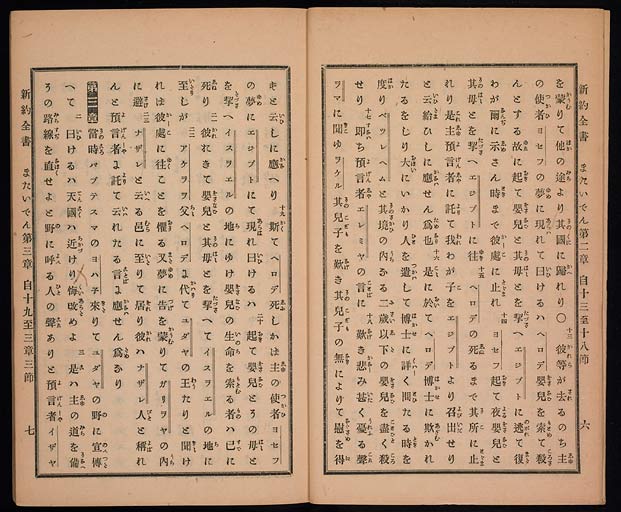 新約全書 またいでん第二章 自十三至十八節 六
を蒙りて他の途より其國に歸れり〇 十三 彼等が去るのち主
の使者ヨセフの夢に現れて曰けるハヘロデ嬰兒を索て殺
んとする故に起て嬰兒と其母とを挈へエジプトに逃て復
わが爾に示さん時まで彼處に止れ 十四 ヨセフ起て夜嬰兒と
其母とを挈へエジプトに往 十五 ヘロデの死るまで其所に止
れり是主預言者に託て我わが子をエジプトより召出せり
と云給ひしに應せん爲也 十六 是に於てヘロデ博士に欺かれ
たるをしり大にいかり人を遣して博士に詳く問たる時を
度りベツレヘムと其境の内なる二歳以下の嬰兒を盡く殺
せり 十七 即ち預言者エレミヤの言に 十八 歎き悲み甚く憂る聲
ラマに聞ゆラケル其兒子を歎き其兒子の無によりて慰を得
新約全書 またいでん第三章 自十九至三章三節 七
きと云しに應へり 十九 斯てヘロデ死しかば主の使者ヨセフ
の夢にエジプトにて現れ曰けるハ 二十 起て嬰兒とその母と
を挈へイスラエルの地にゆけ嬰兒の生命を索る者ハ已に
死り 二一 彼れきて嬰兒と其母とを挈へてイスラエルの地に
至しが 二二 アケラヲ父ヘロデに代てユダヤの王たりと聞け
れば彼處に往ことを懼る又夢に告を蒙りてガリラヤの内
に避 二三 ナザレと云る邑に至りて居り彼ハナザレ人と稱れ
んと預言者に託て云れたる言に應せん爲なり
第三章 當時バプテスマのヨハ子來りてユダヤの野に宣傳
へて 二 曰けるハ天國ハ近けり悔改めよ 三 是ハ主の道を備
その路線を直せよと野に呼る人の聲ありと預言者イザヤ